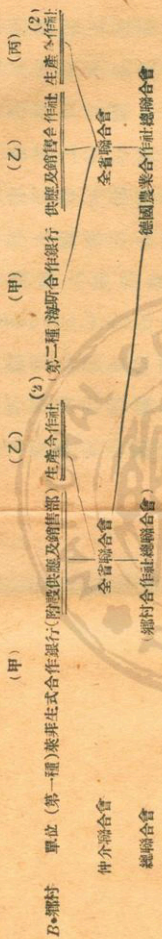 (甲) (乙) (甲) (乙) (丙)
B•鄉村 單位 (第一種)萊非生式合作銀行(附設供應及銷售部) 生產合作社(2) (第二種)海斯合作銀行 供應及銷售合作社 生產合作社(2)
仲介聯合會 全省聯合會 全省聯合會
總聯合會 鄉村合作社總聯合會) 德國農業合作社總聯合會